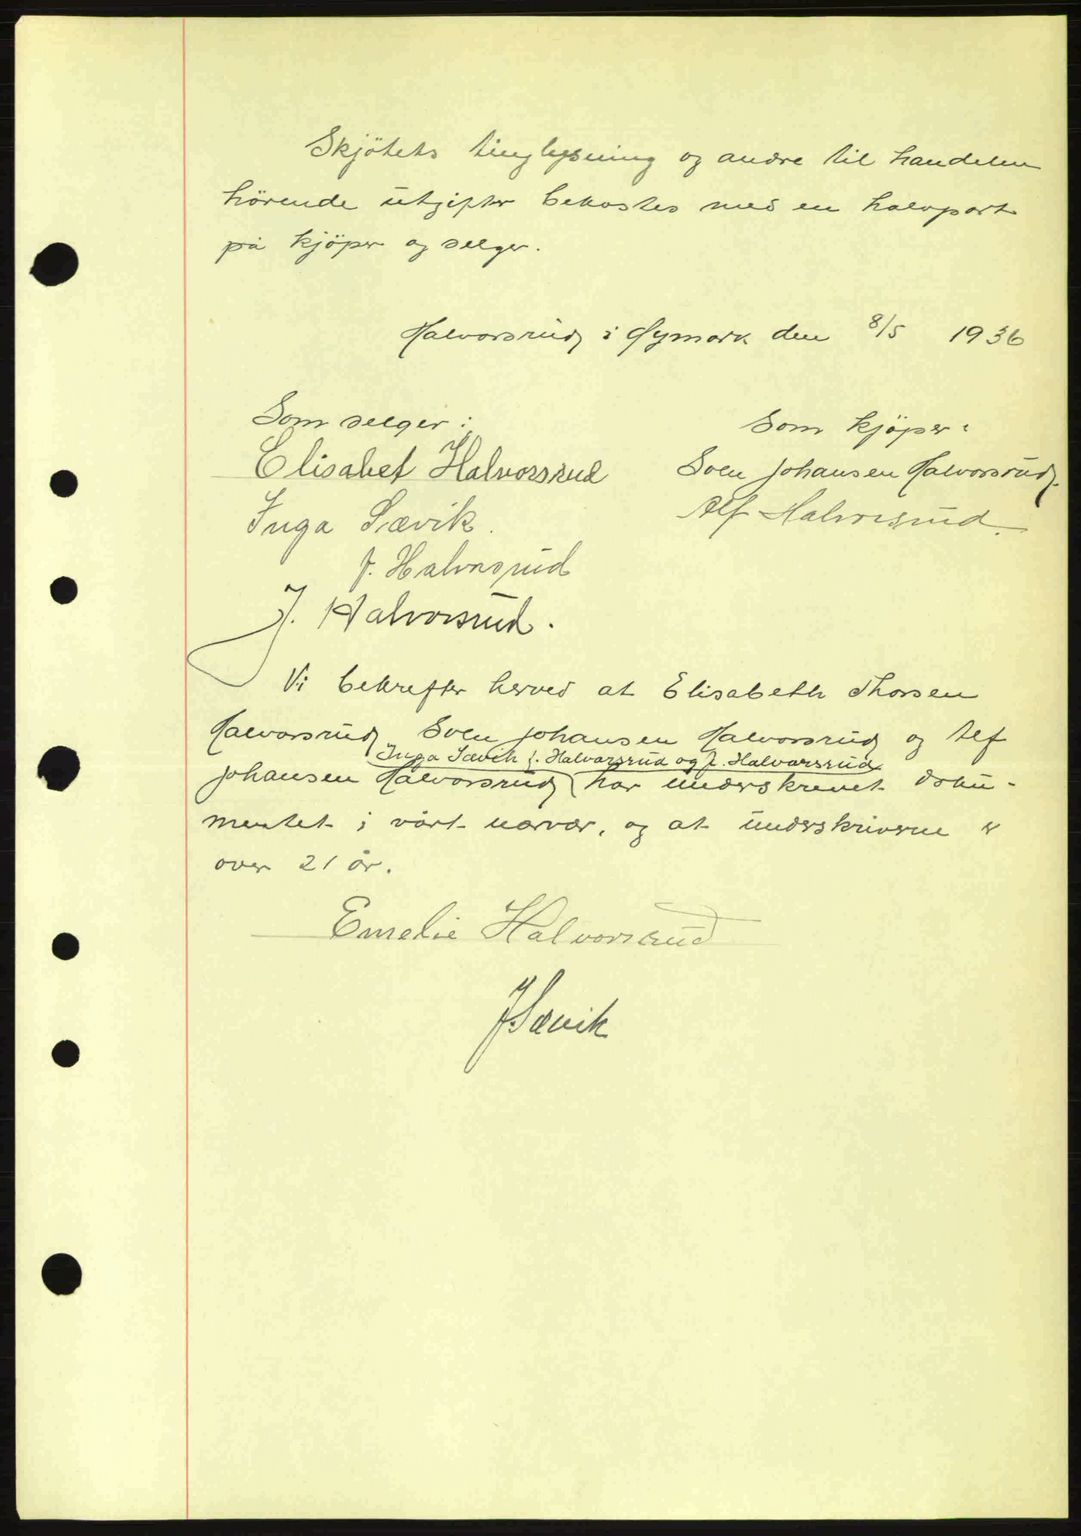 Skjötets tinglysning og andre til handelen
hörende utgifter bekostes med en halvpart
på kjöper og selger.
Halvorsrud i Øymark den 8/5 1936
Som selger:
Som kjöper:
Elisabet Halvorsrud
Sven Johansen Halvorsrud.
Inga Sævik.
Alf Halvorsrud.
J. Halvorsrud
J. Halvorsrud.
Vi bekrefter herved at Elisabeth Thorsen
Halvorsrud Sven Johansen Halvorsrud og Alf
Inga Sævik J. Halvorsrud og J. Halvarsrud
Johansen Halvorsrud har underskrevet doku-
mentet i vårt nærvær, og at underskriverne er
over 21 år.
Emelie Halvorsrud
J. Sævik